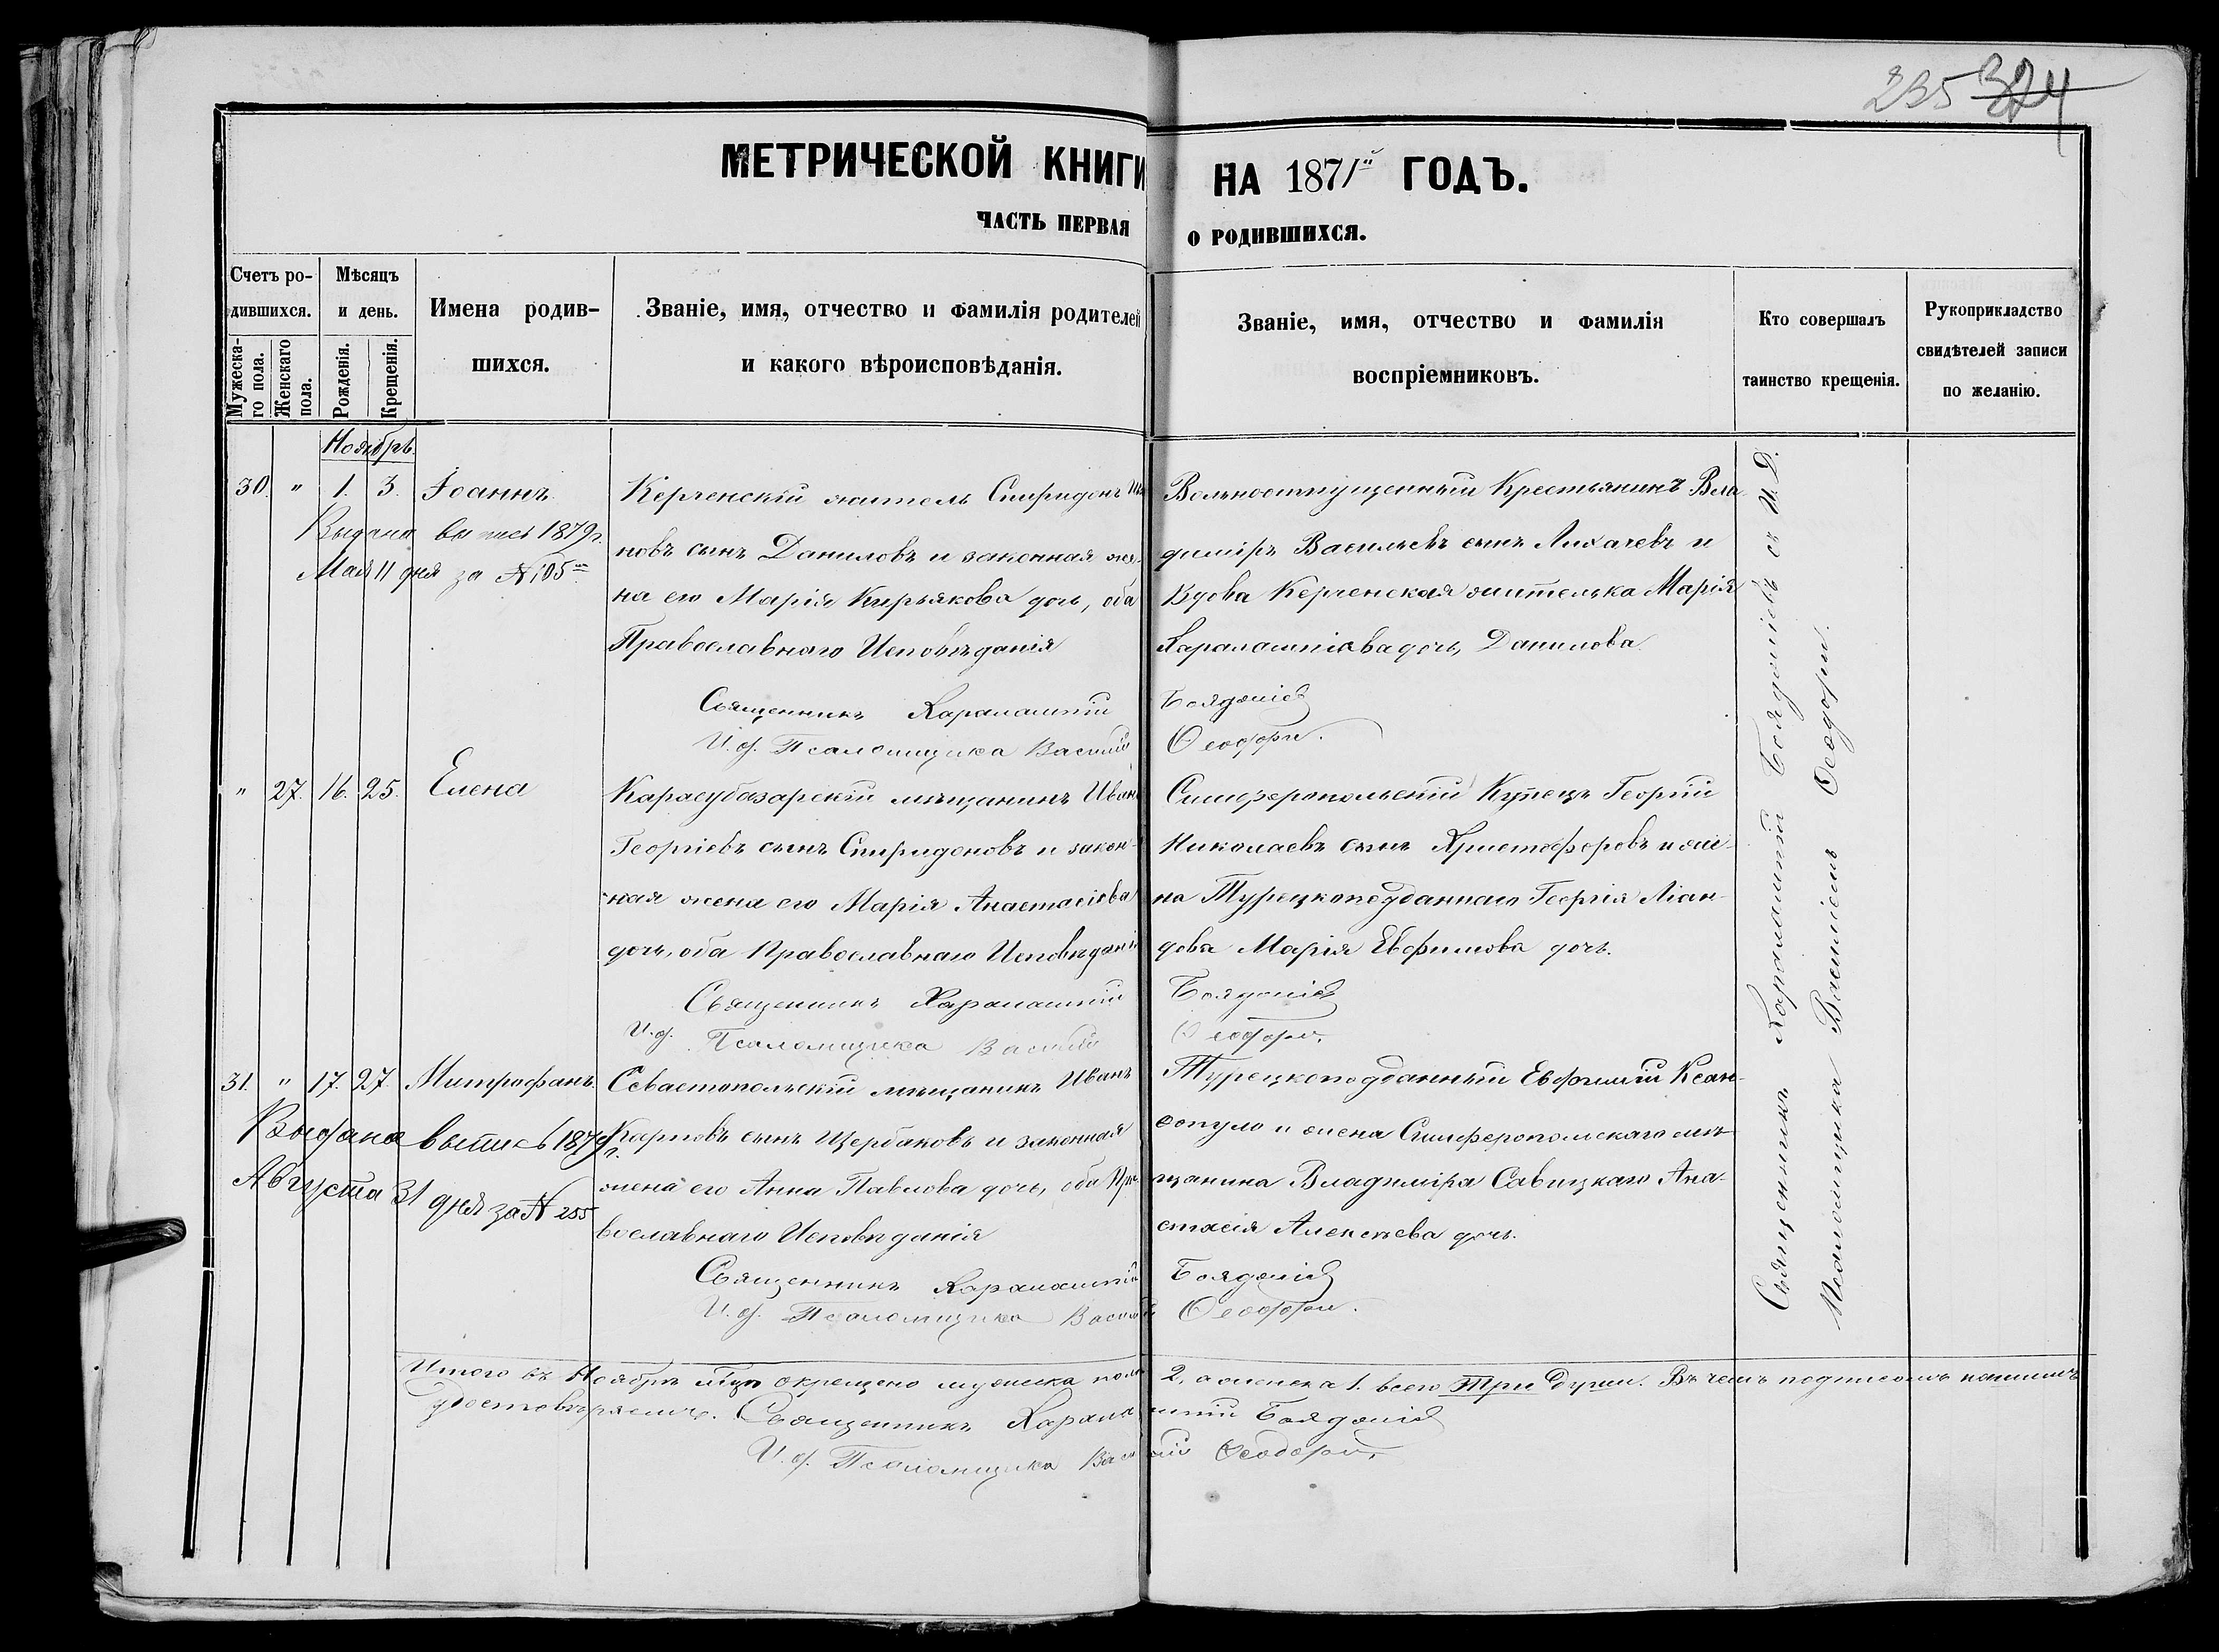 235 324
МЕТРИЧЕСКОЙ КНИГИ НА 1871й ГОДЪ.
ЧАСТЬ ПЕРВАЯ О РОДИВШИХСЯ.
Счетъ ро-
дившихся.
Мужеска-
го пола.
Женскаго
пола.
Мѣсяцъ
и день.
Рожденія.
Крещенія.
Имена родив-
шихся.
Званіе, имя, отчество и фамилія родителей
и какого вѣроисповѣданія.
Званіе, имя, отчество и фамилія
воспріемниковъ.
Кто совершалъ
таинство крещенія.
Рукоприкладство
свидѣтелей записи
по желанію.
Ноябрь.
30. " 1. 3. Іоаннъ.
Выдана вы пись 1879 г.
Мая 11 дня за № 105
Керченскій житель Спиридонъ
новъ сынъ Даниловъ и законная же-
на его Марія Кирьякова дочь, оба
Православнаго Исповѣданія
Вольноотпущенный Крестьянинъ Вла-
димiръ Васильевъ сынъ Лихачевъ и
Вдова Керченская жителька Марія
Харалампіева дочь, Данилова.
Священникъ Харалампій Бояджіевъ
И. д. Псаломщика Василій Ѳеодори.
" 27. 16. 25. Елена
Карасубазарскій мѣщанинъ Иванъ
Георгіевъ сынъ Спиридоновъ и закон-
ная жена его Марія Анастасіева
дочь, оба Православнаго Исповѣданія
Симферопольскій Купецъ Георгій
Николаевъ сынъ Христофоровъ и же-
на Турецкоподданнаго Георгія Ліан-
дова Марія Евфимова дочь.
Священникъ Харалампій Бояджіевъ
И. д. Псаломщика Василій Ѳеодори.
31. " 17. 27. Митрофанъ.
Выдана выпись 1879 г.
Августа 31 дня за № 255
Севастопольскій мѣщанинъ Иванъ
Карповъ сынъ Щербаковъ и законная
жена его Анна Павлова дочь, оба Пра-
вославнаго Исповѣданія
Турецкоподданный Евфимій Ксан-
сопуло и жена Симферопольскаго мѣ-
щанина Владиміра Савицкаго Ана-
стасія Алексѣева дочь.
Священникъ Харалампій Бояджіевъ
И. д. Псаломщика Василій Ѳеодори.
Священникъ Харалампій Бояджіевъ съ И. Д.
Псаломщика Василіемъ Ѳеодори.
Итого въ Ноябрѣ м-цѣ окрещено мужеска пола 2, а женска 1. всего Три души. Въ чемъ подписомъ нашимъ
удостовѣряемъ. Священникъ Харалампій Бояджіевъ
И. д. Псаломщика Василій Ѳеодори.